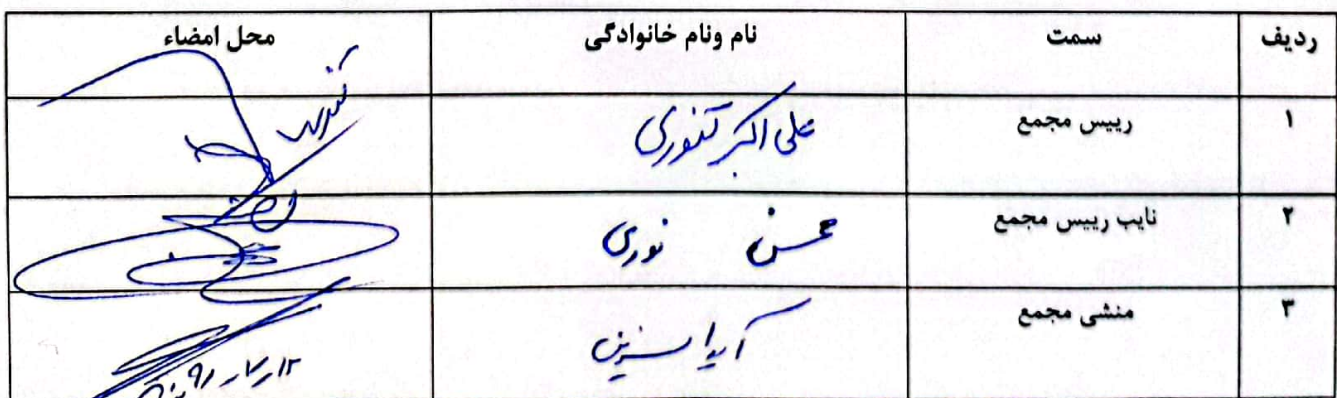 ردیف سمت نام ونام خانوادگی محل امضاء
۱ رییس مجمع علی اکبر تنوری
۲ نایب رییس مجمع محسن نوری
۳ منشی مجمع